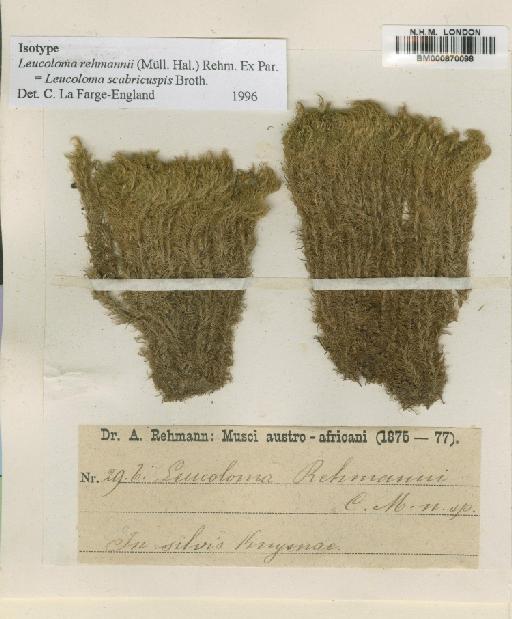 N.H.M. LONDON
BM000870098
Isotype
Leucoloma rehmannii (Müll. Hal.) Rehm. Ex Par.
= Leucoloma scabricuspis Broth.
Det. C. La Farge-England 1996
Dr. A. Rehmann: Musci austro-africani (1875 — 77).
Nr. 29 b. Leucoloma Rehmanni
C. M. n. sp.
In silvis Knysnae.